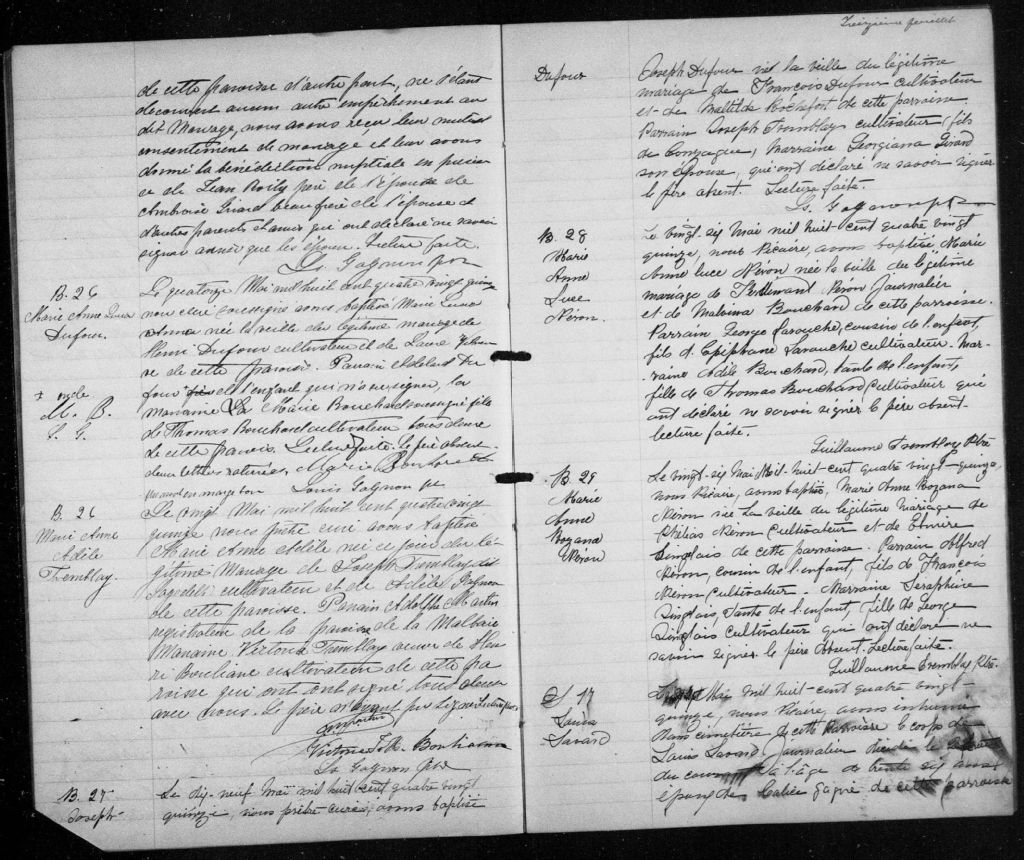 de cette paroisse d'autre part, ne s'étant
découvert aucun autre empêchement au
dit Mariage, nous avons reçu leur mutuel
consentement de mariage et leur avons
donné la bénédiction nuptiale en présen
ce de Jean Boily père de l'épouse de
Ambroise Girard beau frère de l'épouse et
d'autres parents et amis qui ont déclaré ne savoir
signer ainsi que les époux. Lecture faite.
Ls. Gagnon ptre
B. 26
Marie Anne Luce
Dufour.
Le quatorze Mai mil huit cent quatre vingt quinze
nous curé soussigné avons baptisé Marie Luce
Anna née la veille du légitime mariage de
Henri Dufour cultivateur et de Laure
de cette paroisse. Parrain Adélard Du
four de l'enfant qui n'a su signer, la
marraine Marie Bouchard soussigné fille
de Thomas Bouchard cultivateur tous deux
de cette paroisse. Lecture faite. Le père absent
deux lettres raturées, Marie
en marge bon Louis Gagnon ptre
± oncle
M. B.
L. G.
B. 26
Marie Anne
Adèle
Tremblay.
Le vingt Mai mil huit cent quatre vingt
quinze nous prêtre curé avons baptisé
Marie Anne Adèle née ce jour du lé
gitime Mariage de Joseph Tremblay dit
cultivateur et de Adèle Gagnon
de cette paroisse. Parrain Adolphe Martin
registrateur de la paroisse de la Malbaie
Marraine Victoria Tremblay veuve de Hen
ri Bouliane cultivateur de cette pa
roisse qui ont ont signé tous deux
avec nous. Le père n'ayant pu signer Lecture faite
Ls Gagnon Ptre
B. 27
Joseph
Le dix-neuf Mai mil huit cent quatre vingt
quinze, nous prêtre curé, avons baptisé
Treizième feuillet
Dufour
Joseph Dufour né la veille du légitime
mariage de François Dufour cultivateur
et de Mathilde Rochefort de cette paroisse.
Parrain Joseph Tremblay cultivateur, (fils
de Gonzague, Marraine Georgiana Girard
son épouse, qui ont déclaré ne savoir signer
le père absent. Lecture faite.
Ls. Gagnon ptre
B. 28
Marie
Anne
Luce
Néron.
Le vingt-six Mai mil huit-cent quatre vingt
quinze, nous Vicaire, avons baptisé Marie
Anne Luce Néron née la veille du légitime
mariage de Ferdinand Néron journalier
et de Malvina Bouchard de cette paroisse.
Parrain George Larouche, cousin de l'enfant,
fils d'Epiphane Larouche cultivateur. Mar-
raine Adèle Bouchard, tante de l'enfant,
fille de Thomas Bouchard Cultivateur qui
ont déclaré ne savoir signer le père absent.
lecture faite.
Guillaume Tremblay Ptre
B. 29
Marie
Anne
Rozana
Néron
Le vingt-six Mai Mil-huit-cent quatre vingt-quinze,
nous Vicaire, avons baptisé, Marie Anne Rozana
Néron née la veille du légitime mariage de
Phélias Néron Cultivateur et de Elmire
Singlais de cette paroisse. Parrain Alfred
Néron, cousin de l'enfant, fils de François
Néron Cultivateur. Marraine Séraphine
Singlais, Tante de l'enfant, fille de George
Singlais Cultivateur qui ont déclaré ne
savoir signer. le père absent. Lecture faite.
Guillaume Tremblay Ptre.
S 17
Louis
Savard
Mai mil huit-cent quatre vingt-
quinze, nous Vicaire, avons inhumé
dans cimetière de cette Paroisse le corps de
Louis Savard journalier décédé le
du courant à l'âge de trente six ans
époux de Gagné de cette paroisse